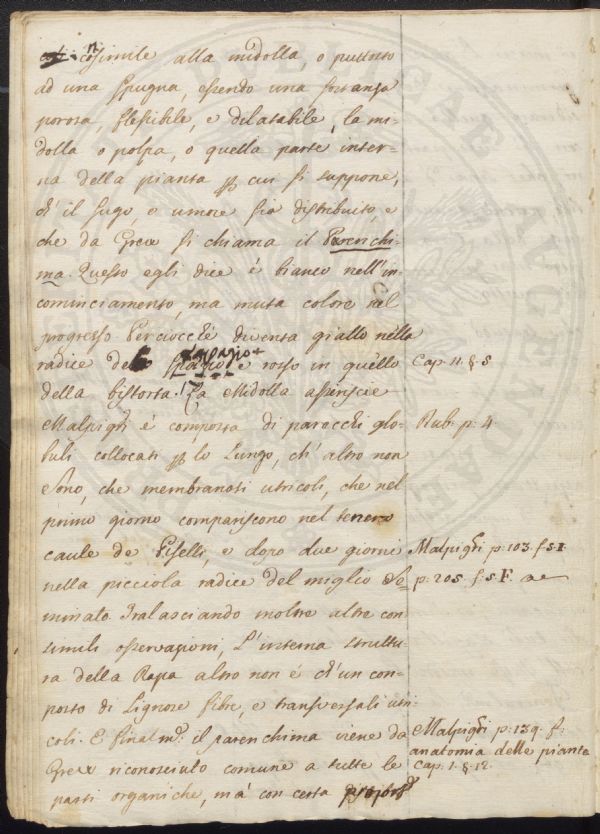 consimile alla midolla, o piuttosto
ad una spugna, essendo una sostanza
porosa, flessibile, e dilatabile, la mi-
dolla o polpa, o quella parte inter-
na della pianta p cui si suppone,
ch'il sugo, o umore sia distribuito, e
che da Grew si chiama il Parenchi-
ma. Questo egli dice è bianco nell'in-
cominciamento, ma muta colore nel
progresso. Perciocché diventa giallo nella
radice del è rosso in quello
Cap. II. § 5
della bistorta. La Midolla asserisce
Malpighi è composta di parecchi glo-
Rub: p. 4
buli collocati p lo lungo, ch'altro non
sono, che membranosi utricoli, che nel
primo giorno compariscono nel tenero
caule de Piselli, e dopo due giorni
Malpighi p. 103. f. 51
nella picciola radice del miglio se-
p. 205. f. 5. F.
minato. Tralasciando inoltre altre con
simili osservazioni, L'interna struttu-
ra della Rapa altro non è ch'un com-
posto di Lignose fibre, e transversali utri
coli. E finalm.e il parenchima viene da
Malpighi p. 139. f.
anatomia delle piante
Grew riconosciuto comune a tutte le
Cap. 1. § 12
parti organiche, ma con certa